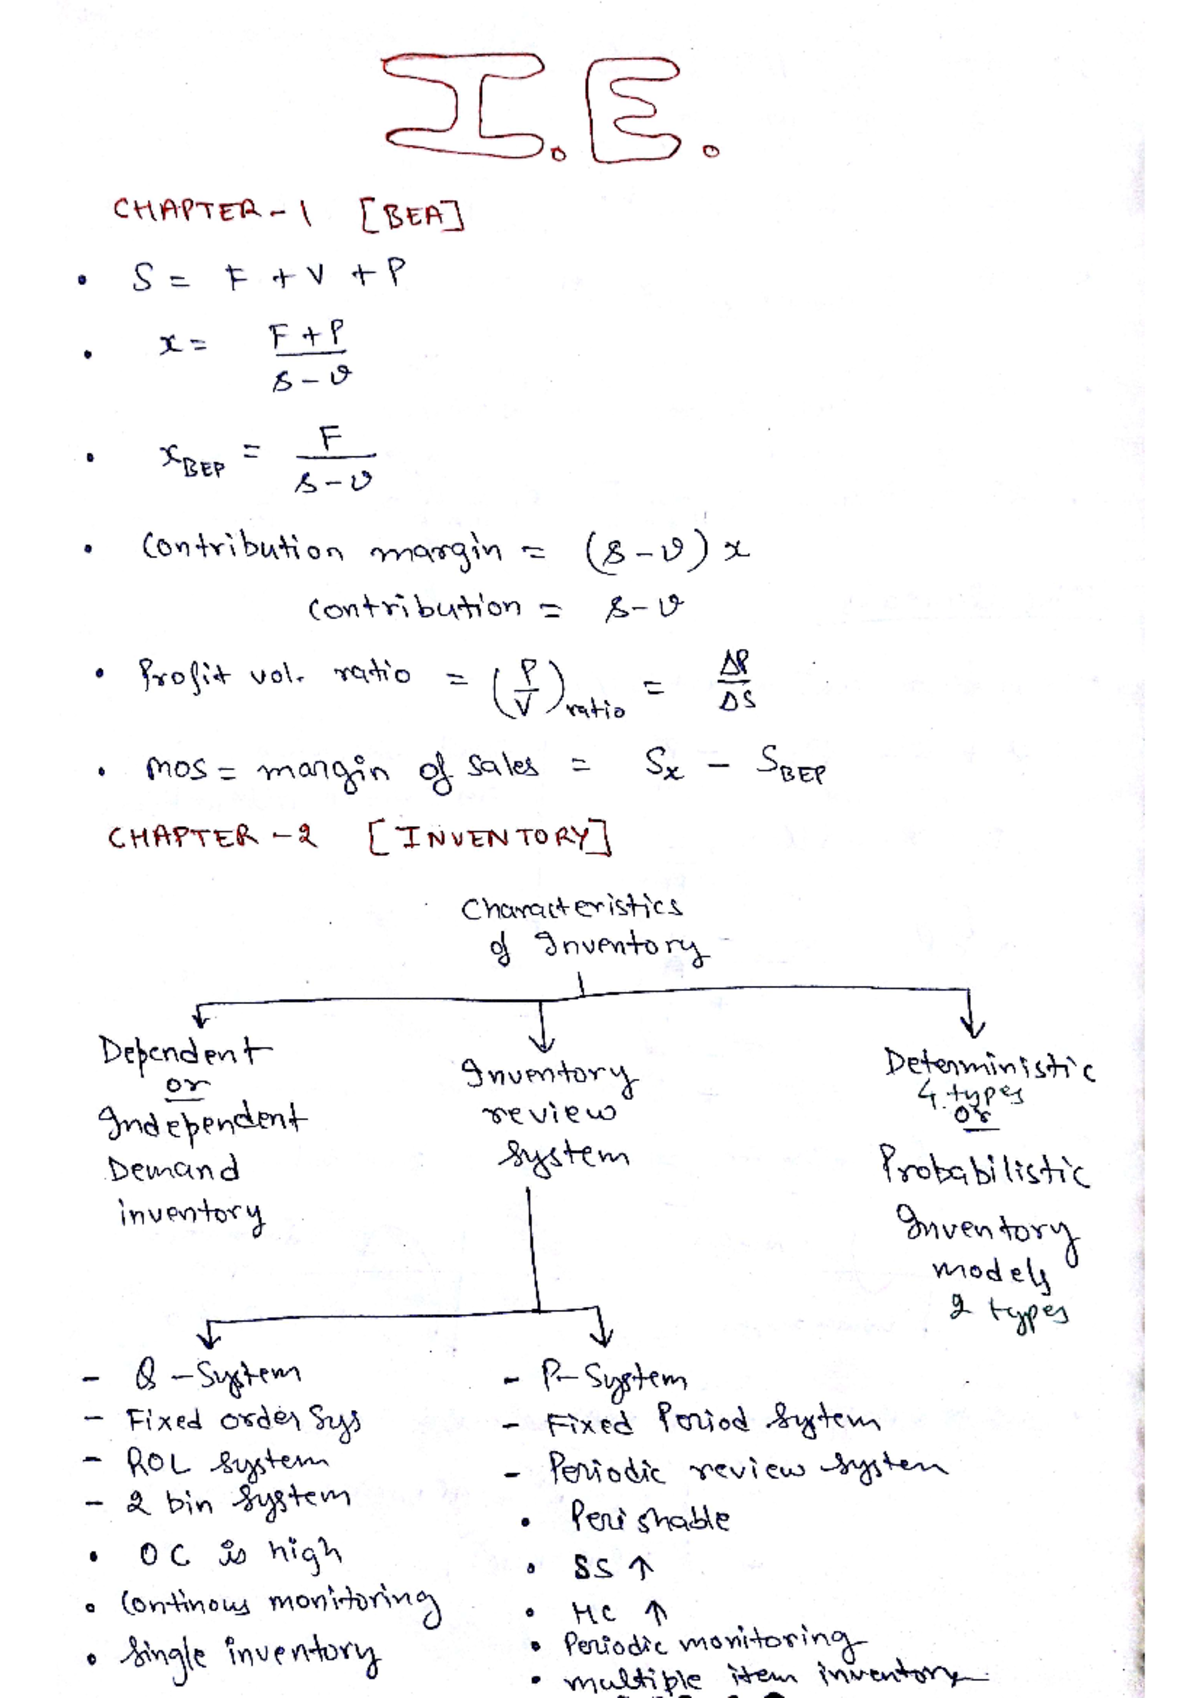 I.E.
CHAPTER-1 [BEA]
• S = F + V + P
• x = F + P / s - v
• xBEP = F / s - v
• Contribution margin = (s - v) x
Contribution = s - v
• Profit vol. ratio = (P/V)ratio = ΔP/ΔS
• MOS = margin of sales = Sx - SBEP
CHAPTER-2 [INVENTORY]
Characteristics
of Inventory
Dependent
or
Independent
Demand
inventory
Inventory
review
system
Deterministic
4 types
or
Probabilistic
Inventory
models
2 types
- Q-System
- Fixed order Sys
- ROL System
- 2 bin System
• OC is high
• Continous monitoring
• Single inventory
- P-System
- Fixed Period System
- Periodic review system
• Perishable
• SS ↑
• HC ↑
• Periodic monitoring
• multiple item inventory